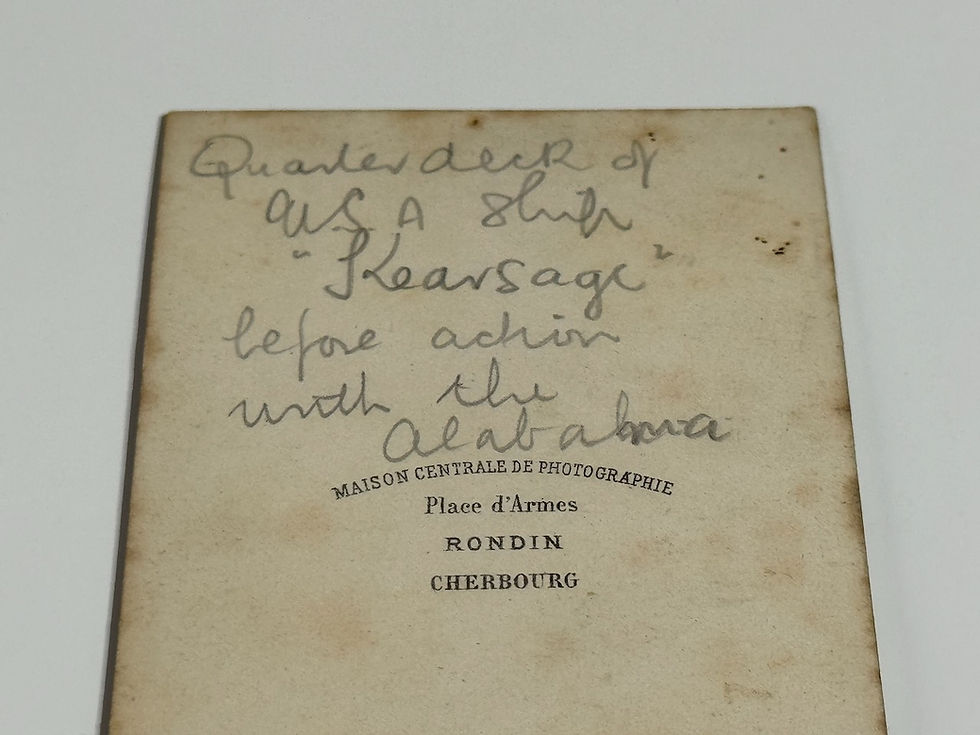 Quarter deck of
U.S.A Ship
"Kearsage"
before action
with the
Alabahma
MAISON CENTRALE DE PHOTOGRAPHIE
Place d'Armes
RONDIN
CHERBOURG